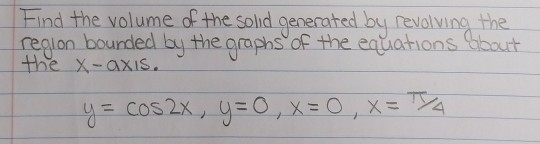 Find the volume of the solid generated by revolving the
region bounded by the graphs of the equations about
the x-axis.
y = cos2x, y=0, x=0, x= π/4